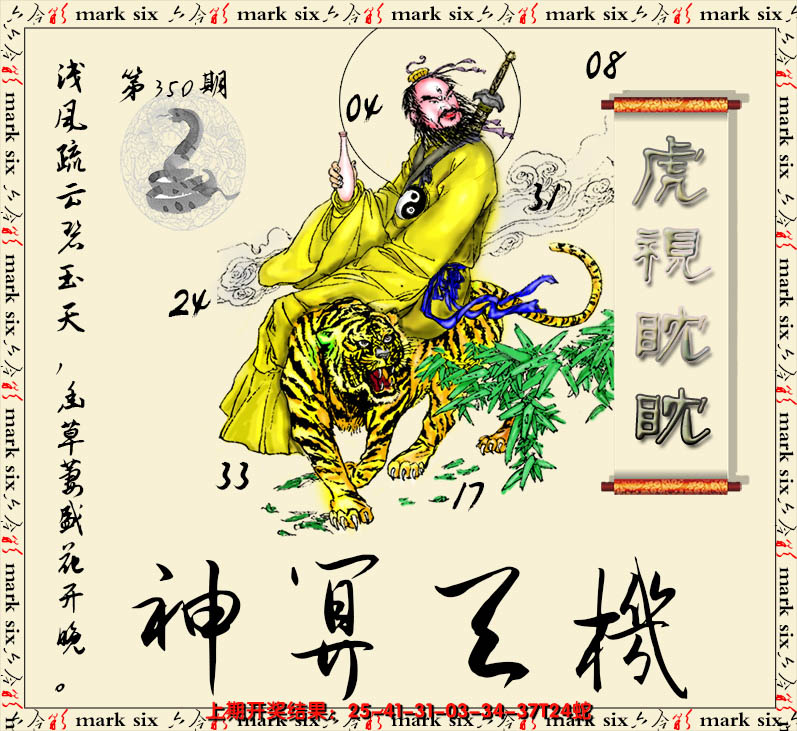 六合彩 mark six 六合彩 mark six 六合彩 mark six 六合彩 mark six 六合彩 mark six
第350期
08
04
31
24
33
17
虎視眈眈
浅风疏云碧玉天，
草萋盛花开晚。
神算天機
上期开奖结果：25-41-31-03-34-37T24蛇
六合彩 mark six 六合彩 mark six 六合彩 mark six 六合彩 mark six